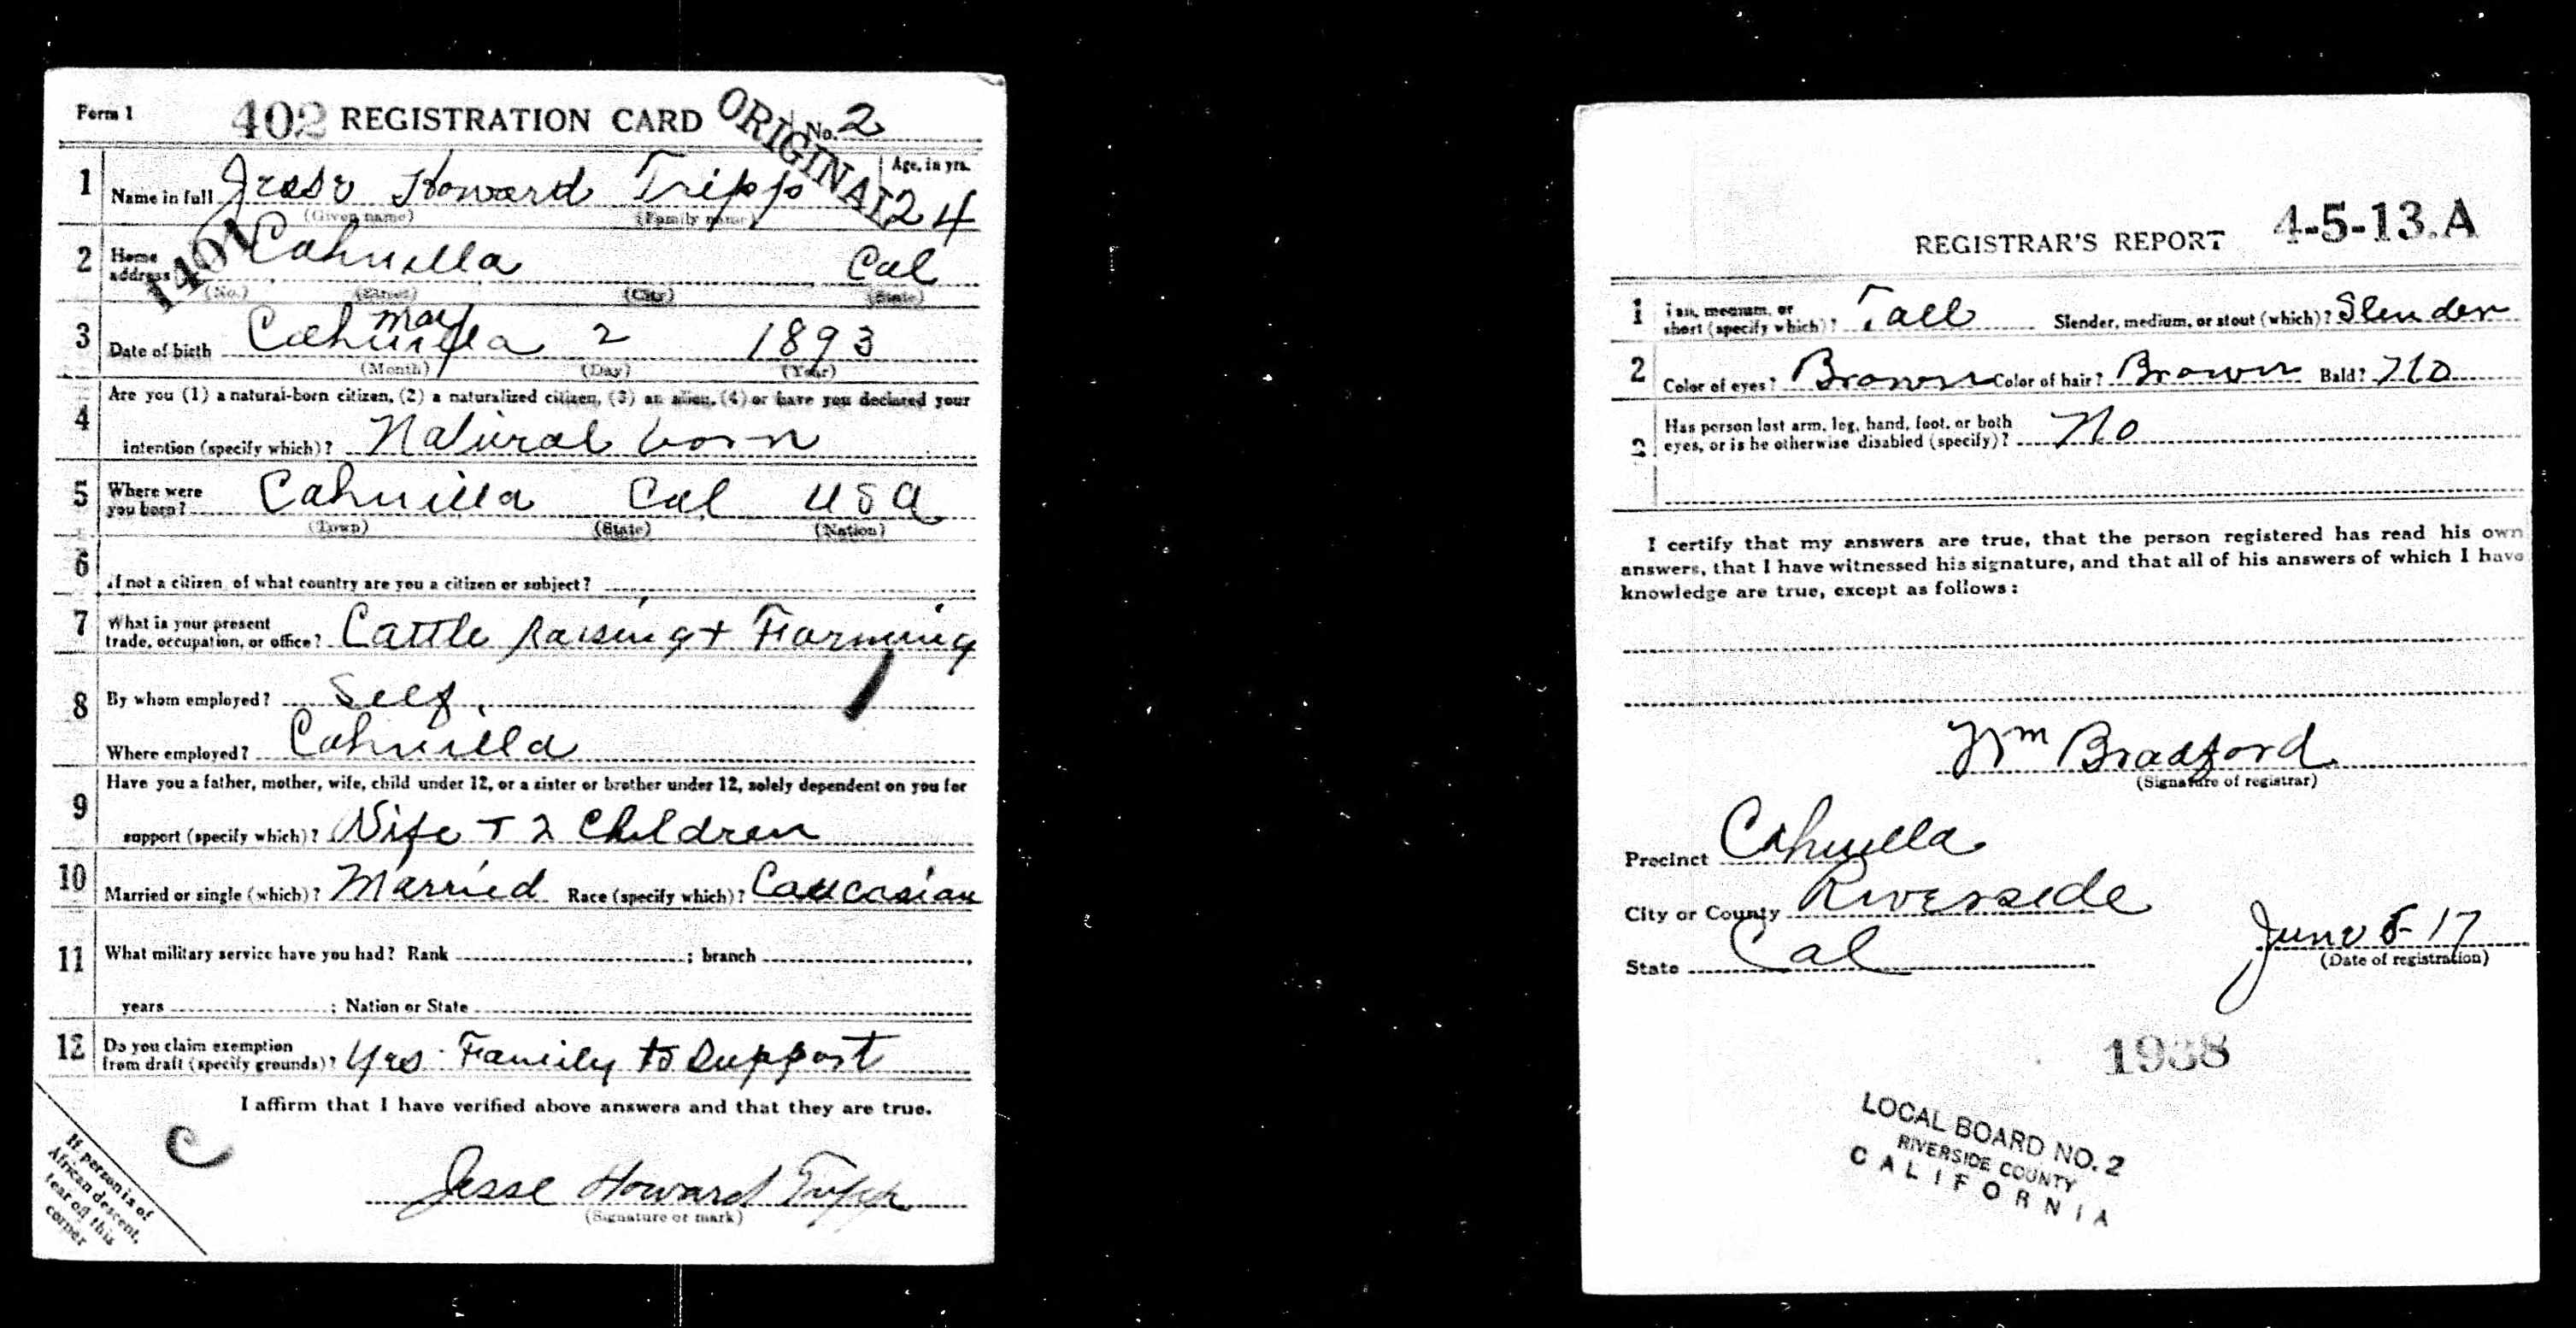 Form 1 402 REGISTRATION CARD ORIGINAL No. 2
1 Name in full Jesse Howard Tripp Age, in yrs. 24
(Given name) (Family name)
1401
2 Home address Cahuilla Cal
(No.) (Street) (City) (State)
May
3 Date of birth Cahuilla 2 1893
(Month) (Day) (Year)
4 Are you (1) a natural-born citizen, (2) a naturalized citizen, (3) an alien, (4) or have you declared your
intention (specify which)? Natural born
5 Where were you born? Cahuilla Cal USA
(Town) (State) (Nation)
6 If not a citizen, of what country are you a citizen or subject?
7 What is your present
trade, occupation, or office? Cattle Raising + Farming
8 By whom employed? Self.
Where employed? Cahuilla
9 Have you a father, mother, wife, child under 12, or a sister or brother under 12, solely dependent on you for
support (specify which)? Wife + 2 Children
10 Married or single (which)? Married Race (specify which)? Caucasian
11 What military service have you had? Rank ; branch
years ; Nation or State
12 Do you claim exemption
from draft (specify grounds)? Yes Family to Support
I affirm that I have verified above answers and that they are true.
C
Jesse Howard Tripp
(Signature or mark)
If person is of
African descent,
tear off this
corner
REGISTRAR'S REPORT 4-5-13.A
1 Tall, medium, or
short (specify which)? Tall Slender, medium, or stout (which)? Slender
2 Color of eyes? Brown Color of hair? Brown Bald? No
3 Has person lost arm, leg, hand, foot, or both
eyes, or is he otherwise disabled (specify)? No
I certify that my answers are true, that the person registered has read his own
answers, that I have witnessed his signature, and that all of his answers of which I have
knowledge are true, except as follows:
Wm Bradford
(Signature of registrar)
Precinct Cahuilla
City or County Riverside
State Cal
June 5-17
(Date of registration)
1938
LOCAL BOARD NO. 2
RIVERSIDE COUNTY
CALIFORNIA